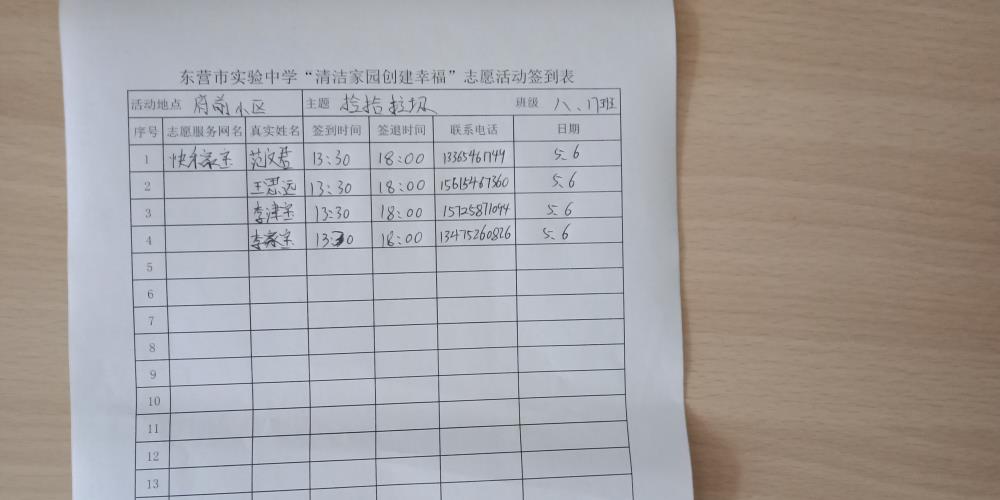 东营市实验中学“清洁家园创建幸福”志愿活动签到表
活动地点 府前小区 主题 捡拾垃圾 班级 八、17班
序号 志愿服务网名 真实姓名 签到时间 签退时间 联系电话 日期
1 范文君 13:30 18:00 13365467144 5.6
2 王思远 13:30 18:00 15615467360 5.6
3 李津宝 13:30 18:00 15725871044 5.6
4 李家宝 13:30 18:00 13475260826 5.6
5
6
7
8
9
10
11
12
13